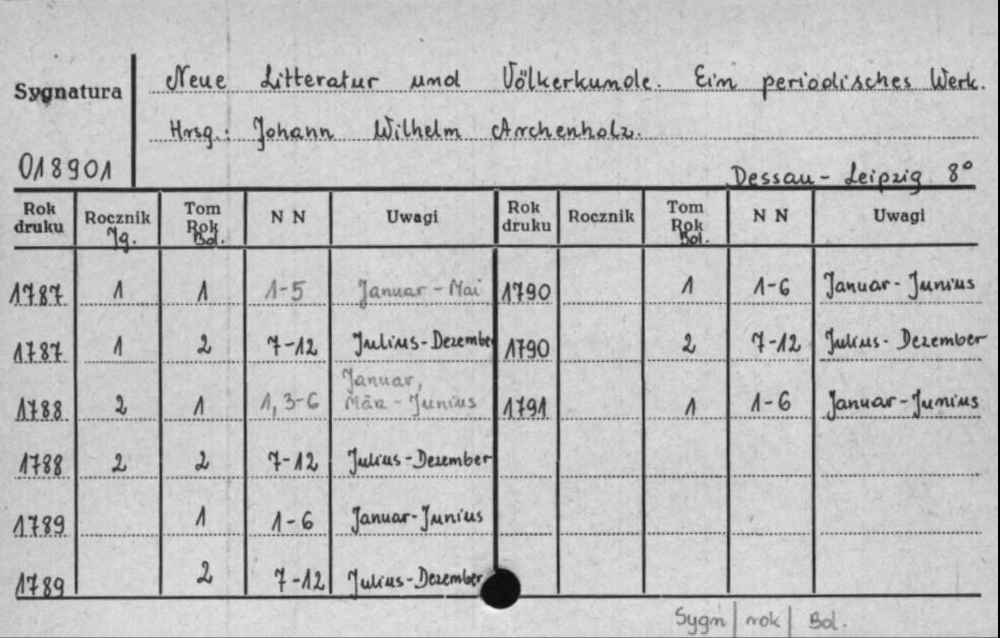 Sygnatura
018901
Neue Litteratur und Völkerkunde. Ein periodisches Werk.
Hrsg.: Johann Wilhelm Archenholz.
Dessau - Leipzig 8°
Rok druku | Rocznik Jg. | Tom Rok Bd. | N N | Uwagi | Rok druku | Rocznik | Tom Rok Bd. | N N | Uwagi
1787 | 1 | 1 | 1-5 | Januar - Mai | 1790 | | 1 | 1-6 | Januar - Junius
1787 | 1 | 2 | 7-12 | Julius - Dezember | 1790 | | 2 | 7-12 | Julius - Dezember
1788 | 2 | 1 | 1, 3-6 | Januar, März - Junius | 1791 | | 1 | 1-6 | Januar - Junius
1788 | 2 | 2 | 7-12 | Julius - Dezember
1789 | | 1 | 1-6 | Januar - Junius
1789 | | 2 | 7-12 | Julius - Dezember
Sygn | rok | Bd.